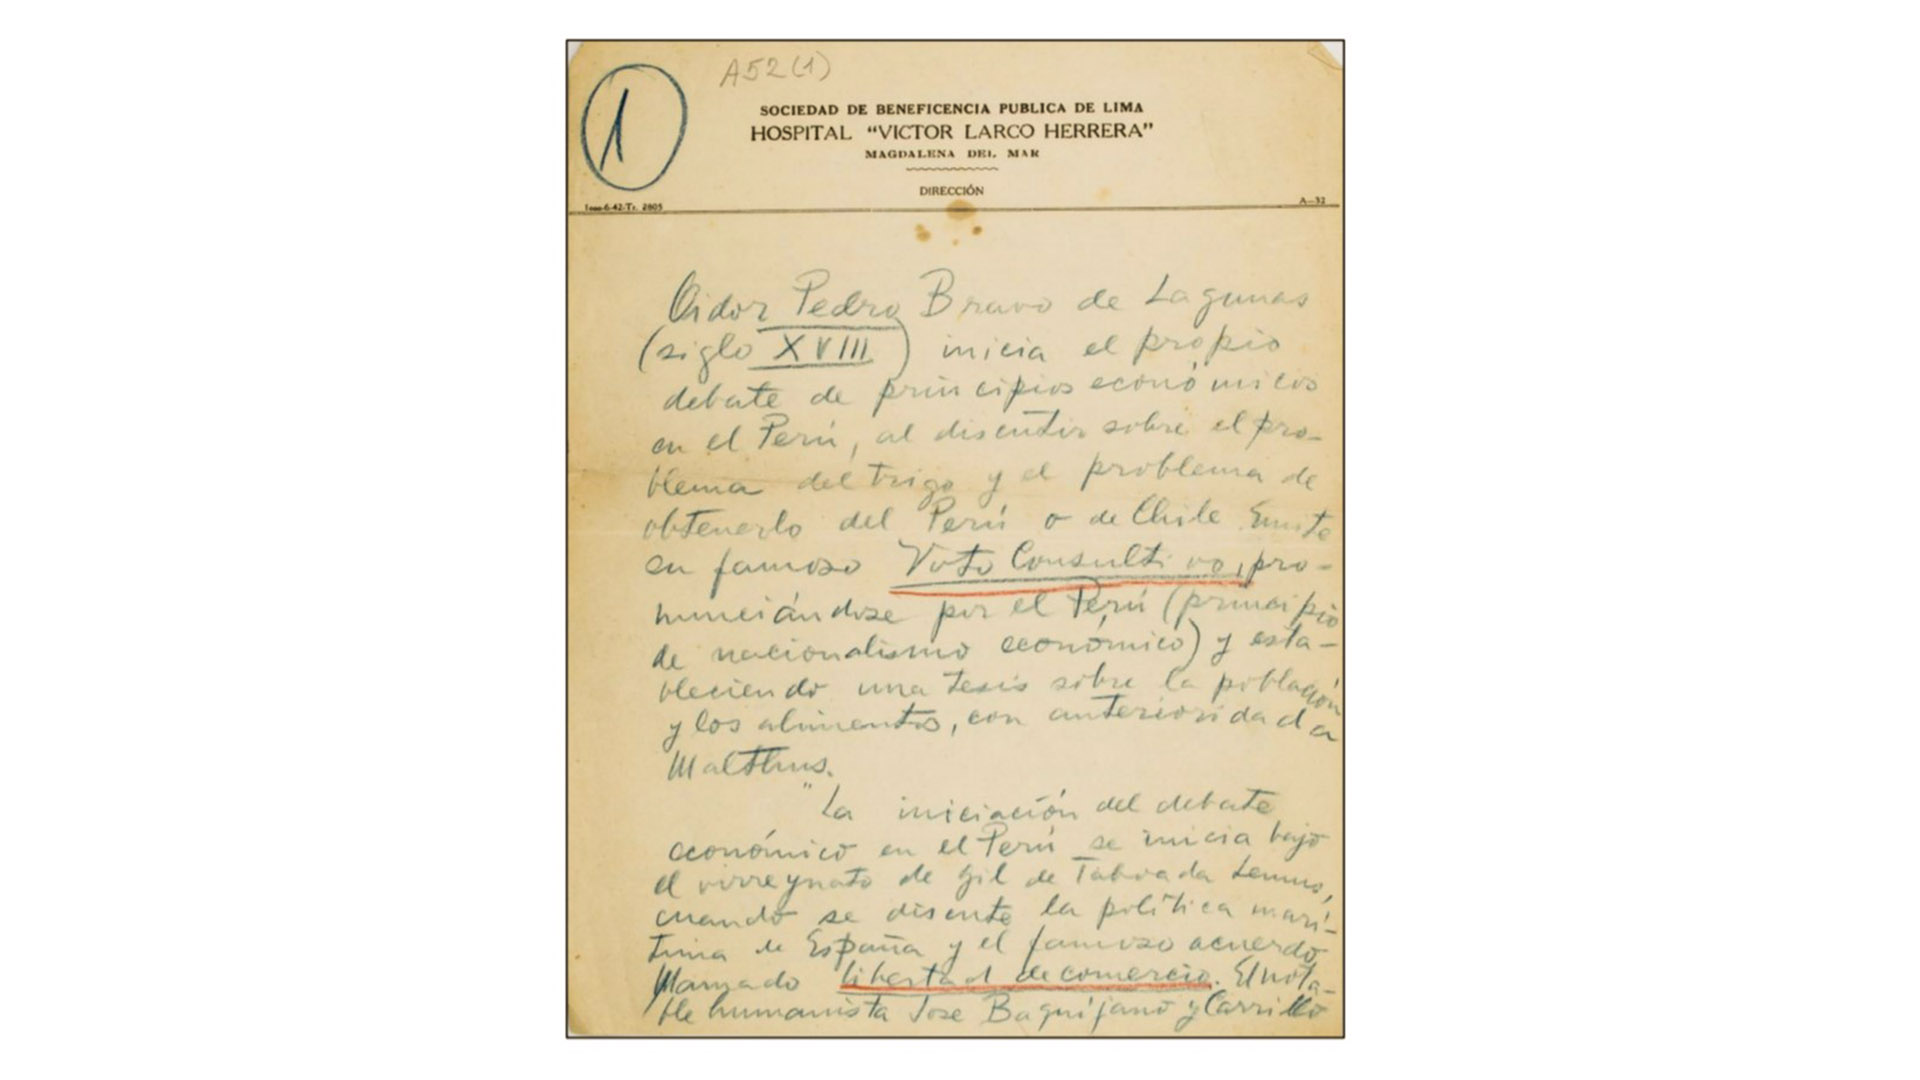 A52(1)
1
SOCIEDAD DE BENEFICENCIA PUBLICA DE LIMA
HOSPITAL "VICTOR LARCO HERRERA"
MAGDALENA DEL MAR
DIRECCIÓN
1000-6-42-Tr. 2805
A—32
Oidor Pedro Bravo de Lagunas
(siglo XVIII) inicia el propio
debate de principios económicos
en el Perú, al discutir sobre el pro-
blema del trigo y el problema de
obtenerlo del Perú o de Chile. Emite
su famoso Voto Consultivo, pro-
nunciándose por el Perú (principio
de nacionalismo económico) y esta-
bleciendo una tesis sobre la población
y los alimentos, con anterioridad a
Malthus.
"La iniciación del debate
económico en el Perú se inicia bajo
el virreynato de Gil de Taboada Lemus,
cuando se discute la política marí-
tima de España y el famoso acuerdo
llamado libertad de comercio. El nota-
ble humanista Jose Baquíjano y Carrillo